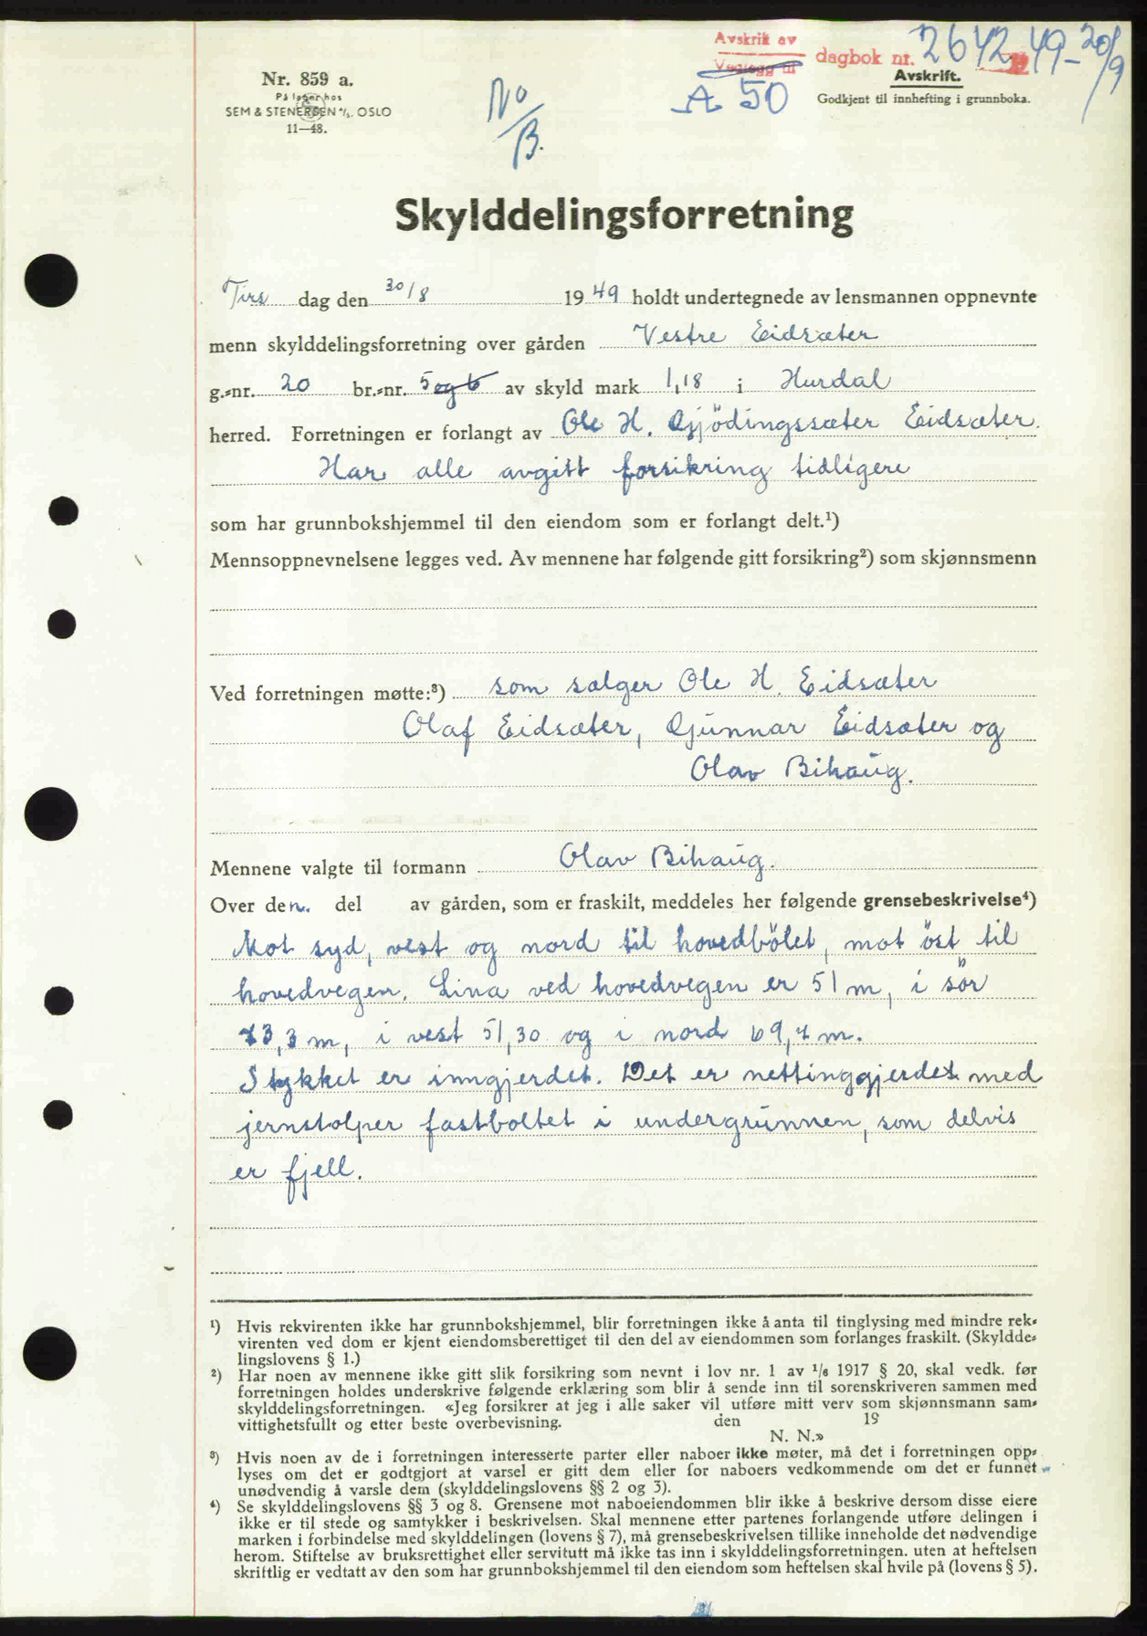 Avskrift av dagbok nr. 2642 49 - 20/9
Vedlegg til
A 50
Avskrift.
Godkjent til innhefting i grunnboka.
Nr. 859 a.
På lager hos
SEM & STENERSEN A/S. OSLO
11—48.
No/B.
Skylddelingsforretning
Tirs dag den 30/8 1949 holdt undertegnede av lensmannen oppnevnte
menn skylddelingsforretning over gården Vestre Eidsæter
g.-nr. 20 br.-nr. 5 og 6 av skyld mark 1,18 i Hurdal
herred. Forretningen er forlangt av Ole H. Gjödingssæter Eidsæter.
Har alle avgitt forsikring tidligere
som har grunnbokshjemmel til den eiendom som er forlangt delt.¹)
Mennsoppnevnelsene legges ved. Av mennene har følgende gitt forsikring²) som skjønnsmenn
Ved forretningen møtte:³) som sælger Ole H. Eidsæter
Olaf Eidsæter, Gunnar Eidsæter og
Olav Bihaug.
Mennene valgte til formann Olav Bihaug.
Over den. del av gården, som er fraskilt, meddeles her følgende grensebeskrivelse⁴)
Mot syd, vest og nord til hovedbölet, mot öst til
hovedvegen. Lina ved hovedvegen er 51 m, i sör
73,3 m, i vest 51,30 og i nord 69,7 m.
Stykket er inngjerdet. Det er nettinggjerdet med
jernstolper fastboltet i undergrunnen, som delvis
er fjell.
¹) Hvis rekvirenten ikke har grunnbokshjemmel, blir forretningen ikke å anta til tinglysing med mindre rek-
virenten ved dom er kjent eiendomsberettiget til den del av eiendommen som forlanges fraskilt. (Skyldde-
lingslovens § 1.)
²) Har noen av mennene ikke gitt slik forsikring som nevnt i lov nr. 1 av ¹/₆ 1917 § 20, skal vedk. før
forretningen holdes underskrive følgende erklæring som blir å sende inn til sorenskriveren sammen med
skylddelingsforretningen. «Jeg forsikrer at jeg i alle saker vil utføre mitt verv som skjønnsmann sam-
vittighetsfullt og etter beste overbevisning. den 19
N. N.»
³) Hvis noen av de i forretningen interesserte parter eller naboer ikke møter, må det i forretningen opp-
lyses om det er godtgjort at varsel er gitt dem eller for naboers vedkommende om det er funnet
unødvendig å varsle dem (skylddelingslovens §§ 2 og 3).
⁴) Se skylddelingslovens §§ 3 og 8. Grensene mot naboeiendommen blir ikke å beskrive dersom disse eiere
ikke er til stede og samtykker i beskrivelsen. Skal mennene etter partenes forlangende utføre delingen i
marken i forbindelse med skylddelingen (lovens § 7), må grensebeskrivelsen tillike inneholde det nødvendige
herom. Stiftelse av bruksrettighet eller servitutt må ikke tas inn i skylddelingsforretningen. uten at heftelsen
skriftlig er vedtatt av den som har grunnbokshjemmel til den eiendom som heftelsen skal hvile på (lovens § 5).